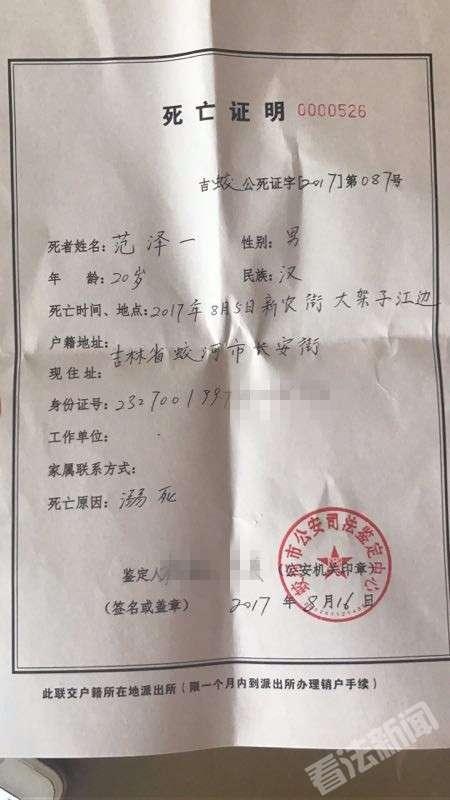 死亡证明 0000526
吉蛟公死证字[2017]第087号
死者姓名：范泽一 性别：男
年 龄：20岁 民族：汉
死亡时间、地点：2017年8月5日新农街 大架子江边
户籍地址：
吉林省蛟河市长安街
现住址：
身份证号：2327001997
工作单位：
家属联系方式：
死亡原因：溺死
鉴定人 （公安机关印章）
（签名或盖章） 2017年8月16日
蛟河市公安司法鉴定中心
此联交户籍所在地派出所（限一个月内到派出所办理销户手续）
看法新闻